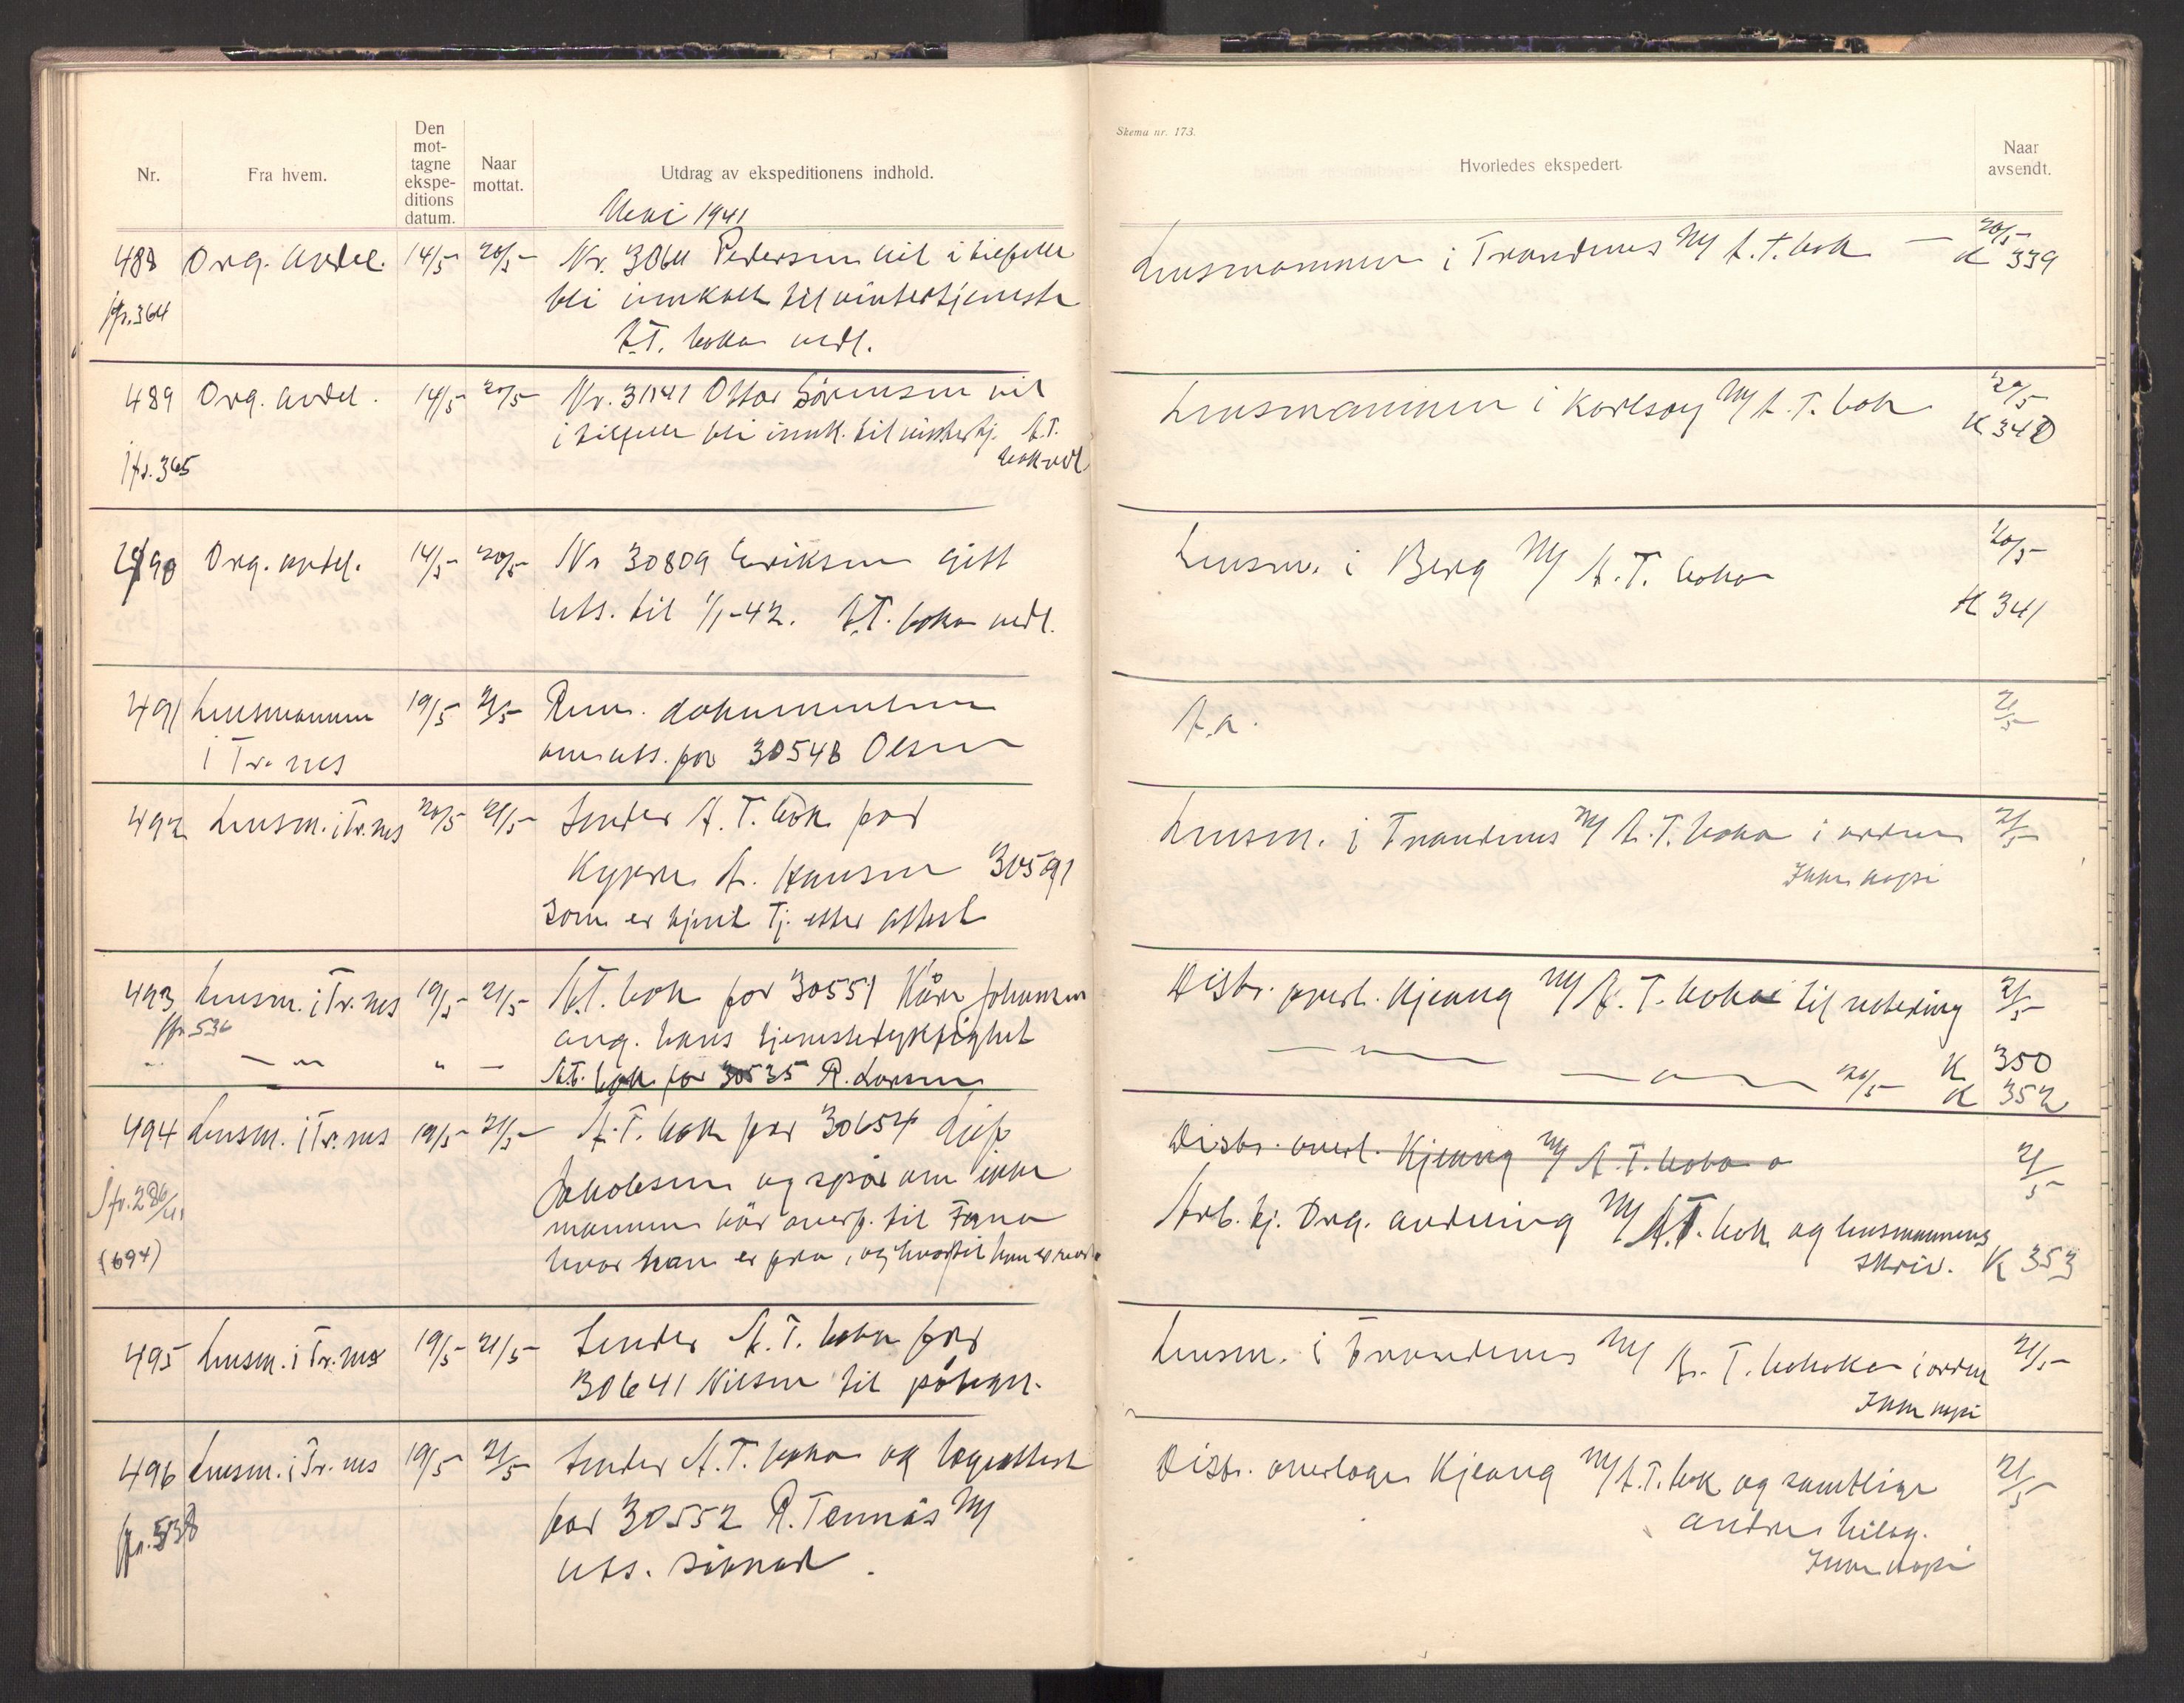 Nr.
Fra hvem.
Den
mot-
tagne
ekspe-
ditions
datum.
Naar
mottat.
Utdrag av ekspeditionens indhold.
Mai 1941
488 Org. avdel. 14/5 20/5 Nr. 30611 Pedersen vil i tilfelle
jfr. 364
bli innkalt til vintertjeneste
A.T. boka vedl.
489 Org. avdel. 14/5 20/5 Nr. 31141 Ottar Sörensen vil
i tilfelle bli innk. til vintertj. A.T.
bok vedl
jfr. 365
490 Org. avdel. 14/5 20/5 Nr 30809 Eriksen gitt
uts. til 1/1-42. A.T. boka vedl.
491 Lensmannen 19/5 21/5 Retur. dokumentene
i Tr.nes
om uts. for 30548 Olsen
492 Lensm. i Tr.nes 20/5 21/5 Sender A.T. bok for
A. Hansen 30591
som er kjent tj. etter attest
493 Lensm. i Tr.nes 19/5 21/5 A.T. bok for 30551 Kåre Johansen
jfr. 536
ang. hans tjenestedyktighet
A.T. bok for 30535 R. Larsen
494 Lensm. i Tr.nes 19/5 21/5 A.T. bok for 30654 Leif
Jfr. 286/41
Jakobsen og spör om ikke
mannen bör overf. til Fana
(694)
hvor han er fra, og hvortil han er
495 Lensm. i Tr.nes 19/5 21/5 Sender A.T. boka for
30641 Nilsen til påtegn.
496 Lensm. i Tr.nes 19/5 21/5 Sender A.T. boka og legeattest
jfr. 538
for 30552 R. Tennås m/
uts. söknad.
Skema nr. 173.
Hvorledes ekspedert.
Naar
avsendt.
Lensmannen i Trondenes m/ A.T. bok — 20/5
K 339
Lensmannen i Karlsöy m/ A.T. bok 20/5
K 340
Lensm. i Berg m/ A.T. boka 20/5
K 341
A.a. 21/5
Lensm. i Trondenes m/ A.T. boka i orden 21/5
Distr. overl. Kjeang m/ A.T. boka til notering 21/5
K 350
— " — 26/5 K 352
Distr. overl. Kjeang m/ A.T. boka 21/5
Arb. tj. Org. avdeling m/ A.T. bok og lensmannens
skriv. K 353
Lensm. i Trondenes m/ A.T. boka i orden 21/5
Distr. overlege Kjeang m/ A.T. bok og samtlige 21/5
andre bilag.